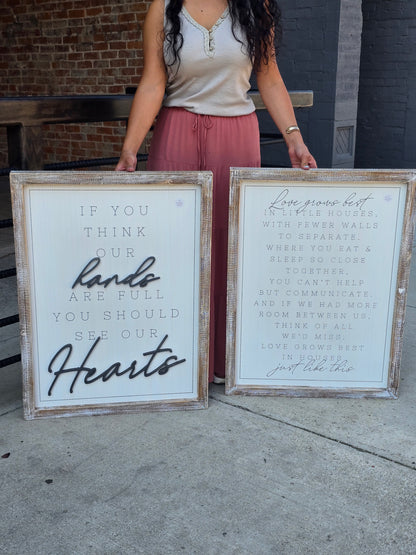 IF YOU
THINK
OUR
hands
ARE FULL
YOU SHOULD
SEE OUR
Hearts
Love grows best
IN LITTLE HOUSES,
WITH FEWER WALLS
TO SEPARATE.
WHERE YOU EAT &
SLEEP SO CLOSE
TOGETHER,
YOU CAN'T HELP
BUT COMMUNICATE.
AND IF WE HAD MORE
ROOM BETWEEN US,
THINK OF ALL
WE'D MISS.
LOVE GROWS BEST
IN HOUSES
just like this